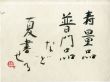 寿量品
普門品
など
夏書